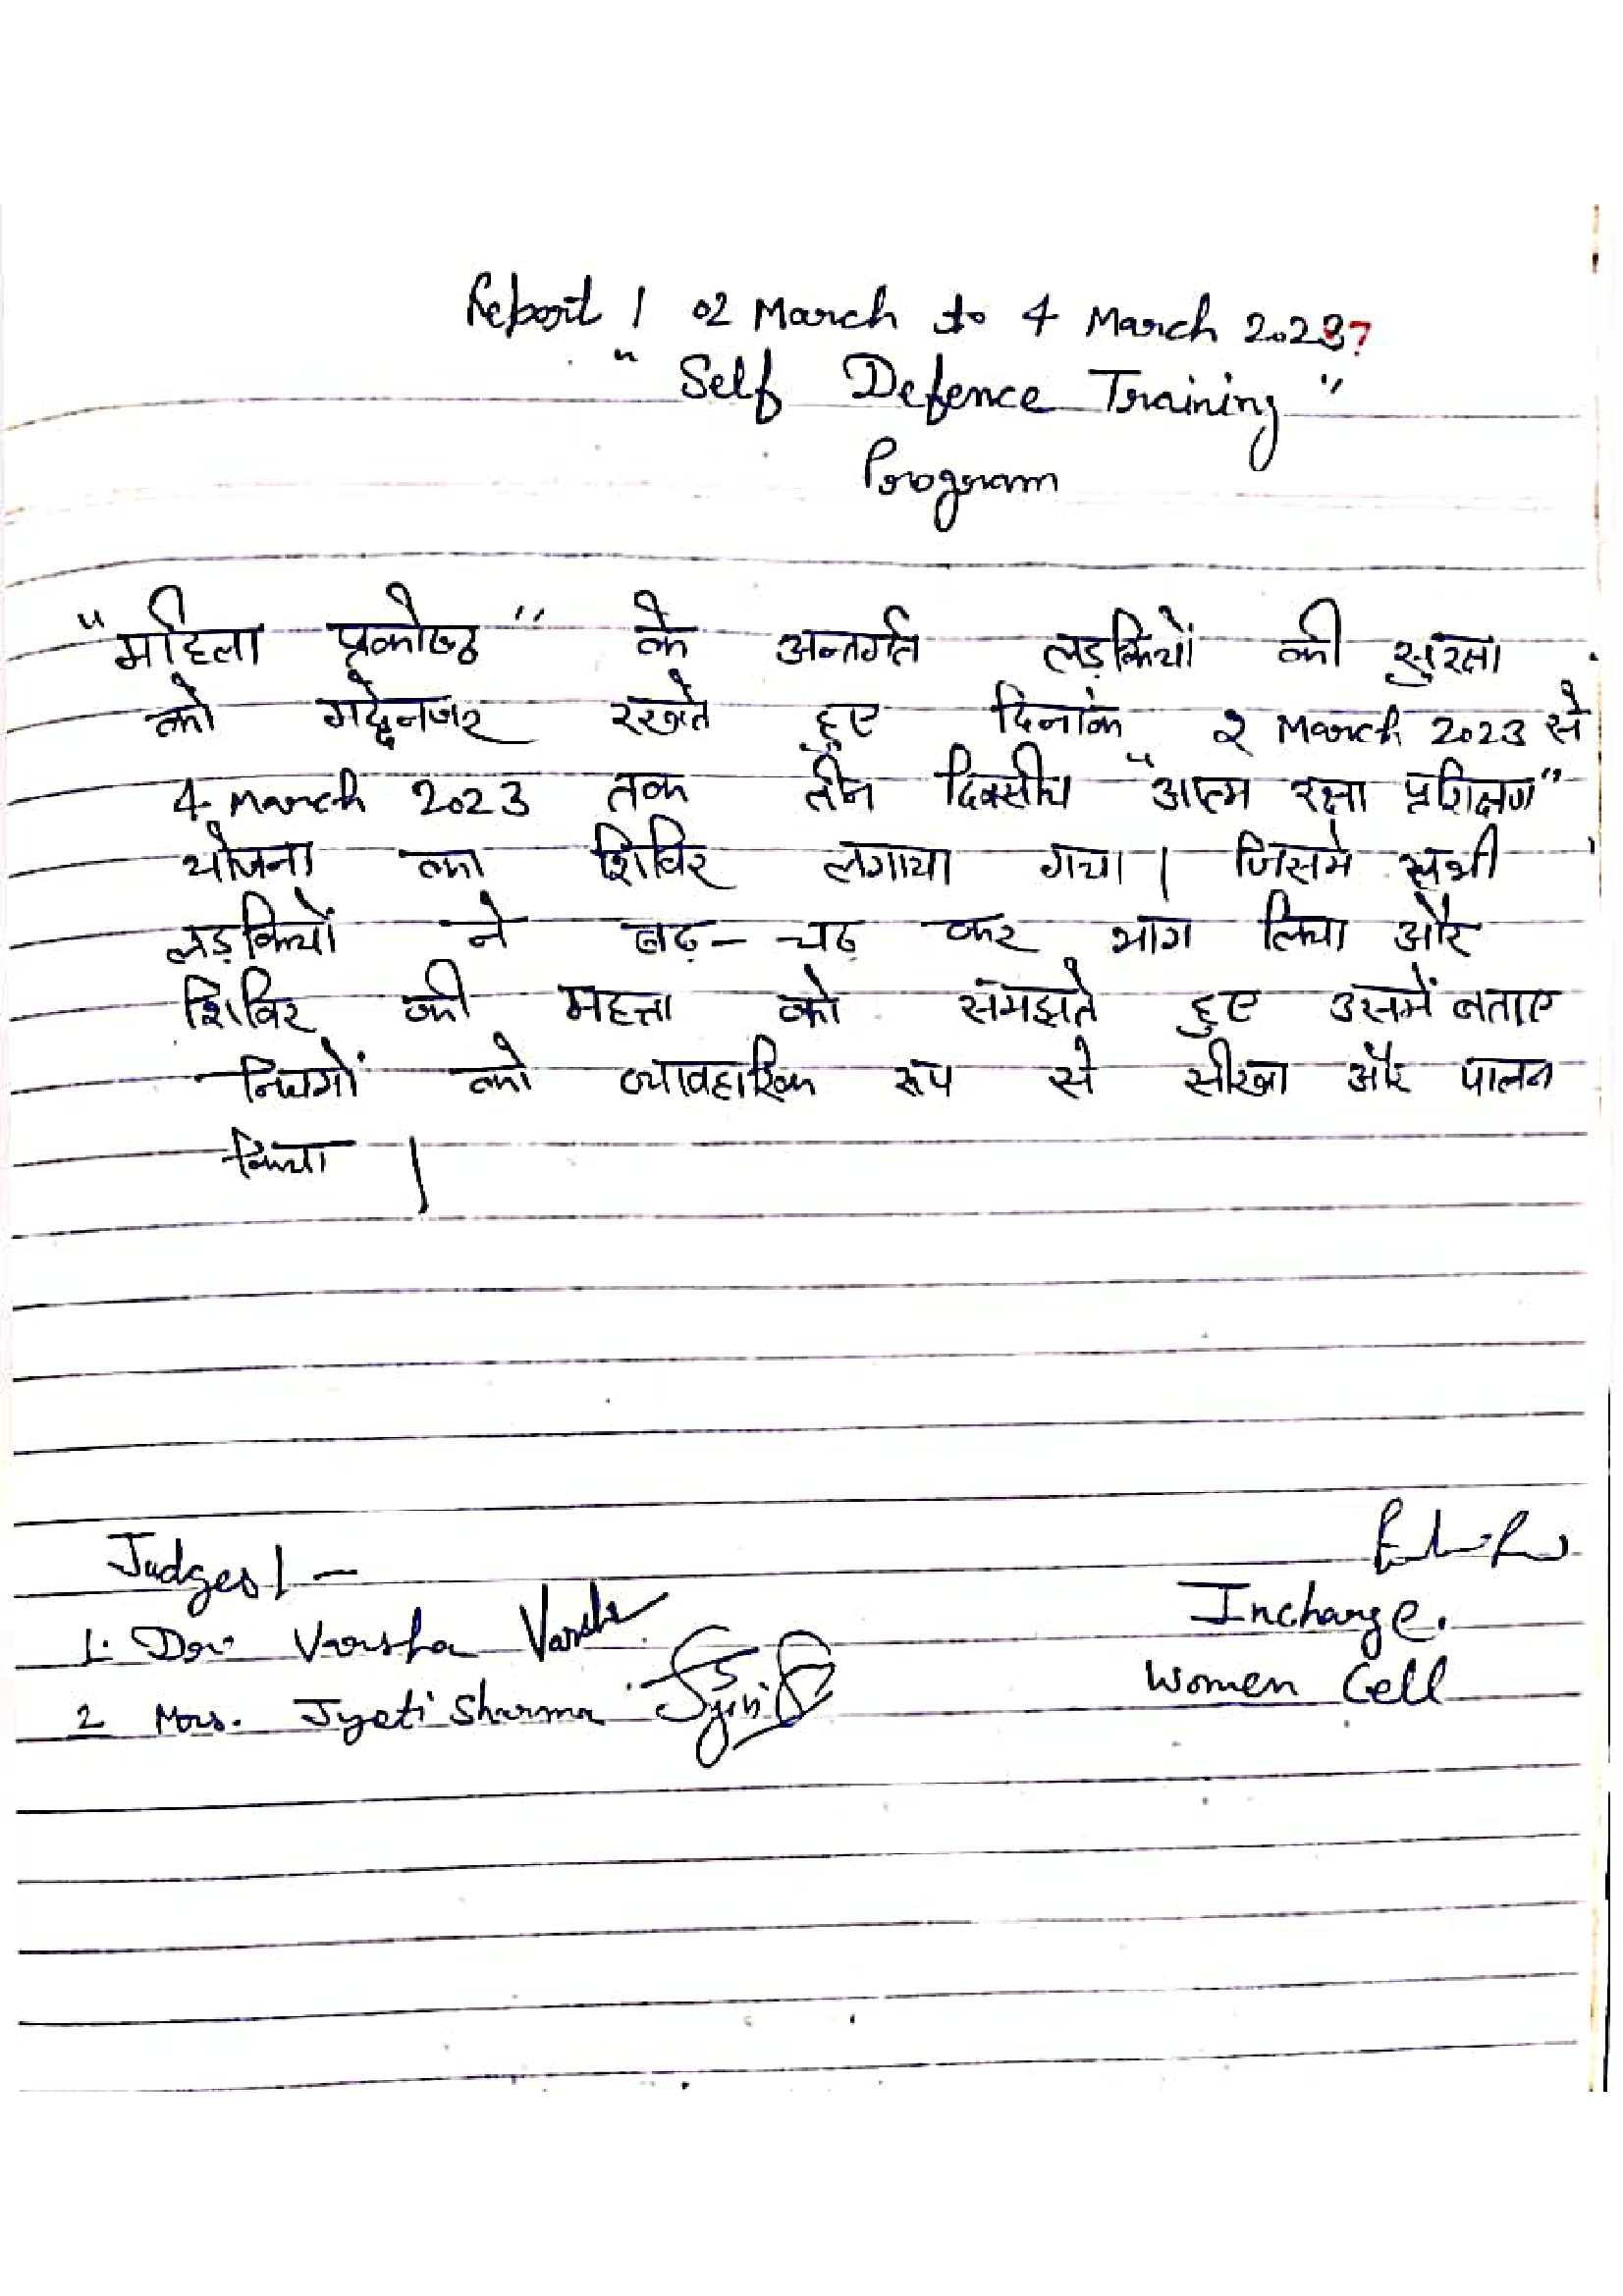 Report | 02 March to 4 March 2023?
" Self Defence Training "
Program
"महिला प्रकोष्ठ" के अन्तर्गत लड़कियों की सुरक्षा
को मद्देनजर रखते हुए दिनांक 2 March 2023 से
4 March 2023 तक तीन दिवसीय "आत्म रक्षा प्रशिक्षण"
योजना का शिविर लगाया गया। जिसमे सभी
लड़कियों ने बढ़ - चढ़ कर भाग लिया और
शिविर की महत्ता को समझते हुए उसमें बताए
नियमों को व्यावहारिक रूप से सीखा और पालन
किया |
Judges | -
1. Dr. Varsha Varsha
2 Mrs. Jyoti Sharma Jyoti
Incharge.
Women Cell